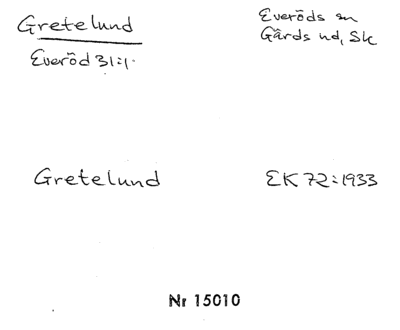 Gretelund
Everöd 31:1.
Everöds sn
Gärds hd, Sk
Gretelund
EK 72:1933
Nr 15010